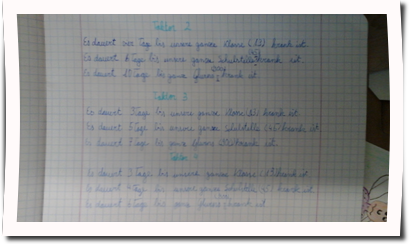 Faktor 2
Es dauert vier Tage bis unsere ganze Klasse (12) krank ist.
Es dauert 6 Tage bis unsere ganze Schulstelle krank ist.
Es dauert 20 Tage bis ganz krank ist.
Faktor 3
Es dauert 3 Tage bis unsere ganze Klasse krank ist.
Es dauert 5 Tage bis unsere ganze Schulstelle (45) krank ist.
Es dauert 7 Tage bis ganz krank ist.
Faktor
Es dauert 3 Tage bis unsere ganze Klasse krank ist.
Es dauert 4 Tage bis unsere ganze Schulstelle krank ist.
Es dauert 6 Tage bis ganz krank ist.